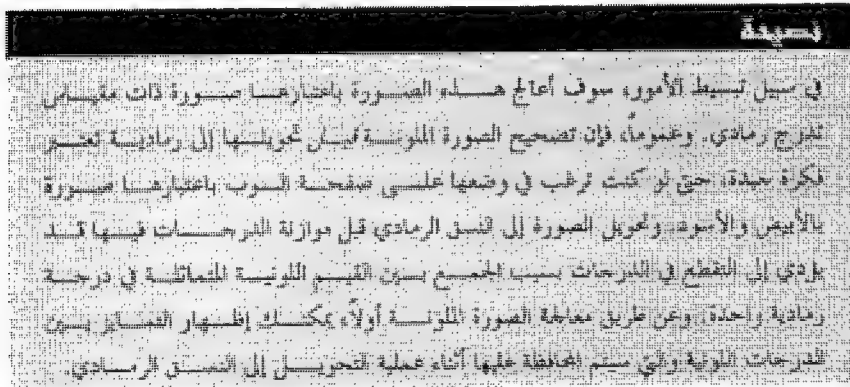 في سبيل تبسيط الأمور، سوف أعالج هذه الصورة باعتبارها صورة ذات مقياس
تدرج رمادي. وعموماً، فإن تصحيح الصورة الملونة قبل تحويلها إلى رمادية تعتبر
فكرة جيدة، حتى لو كنت ترغب في وضعها على صفحة الوب باعتبارها صورة
بالأبيض والأسود. وتحويل الصورة إلى النسق الرمادي قبل موازنة التدرجات فيها قد
يؤدي إلى التقطع في التدرجات بسبب الجمع بين القيم اللونية المتماثلة في درجة
رمادية واحدة. وعن طريق معالجة الصورة الملونة أولاً، يمكنك إظهار التمايز بين
التدرجات اللونية والتي سيتم المحافظة عليها أثناء عملية التحويل إلى النسق الرمادي.